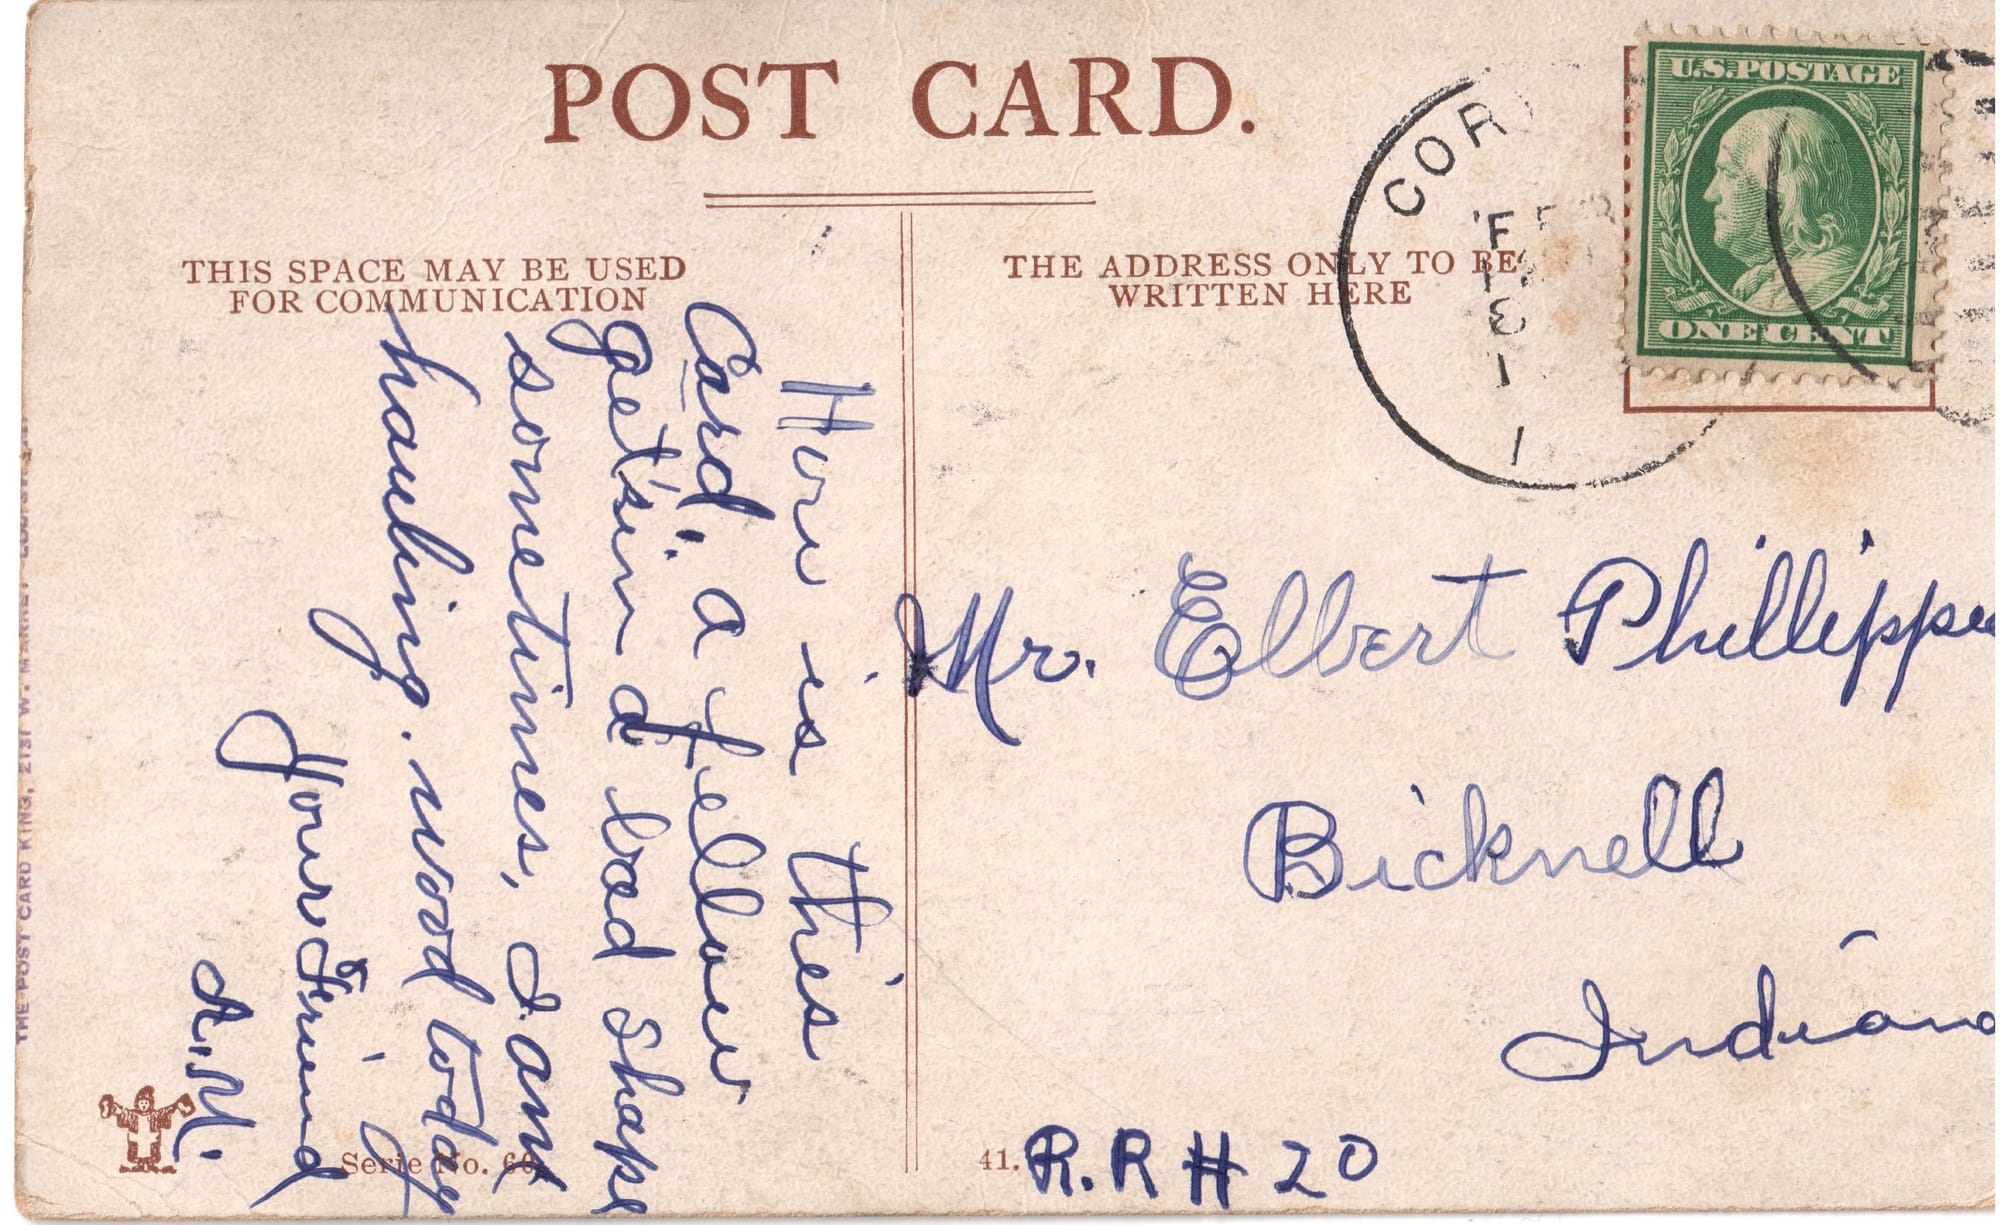 POST CARD.
THIS SPACE MAY BE USED
FOR COMMUNICATION
THE ADDRESS ONLY TO BE
WRITTEN HERE
U.S. POSTAGE
ONE CENT
COR
How is this
Card, a fellow
get's in a bad shape
sometimes, I am
hauling wood today
Your Friend
A.M.
Mr. Elbert Phillippe
Bicknell
Indiana
R.R # 20
Serie No. 60
41.
THE POST CARD KING, 21ST W. MARKET